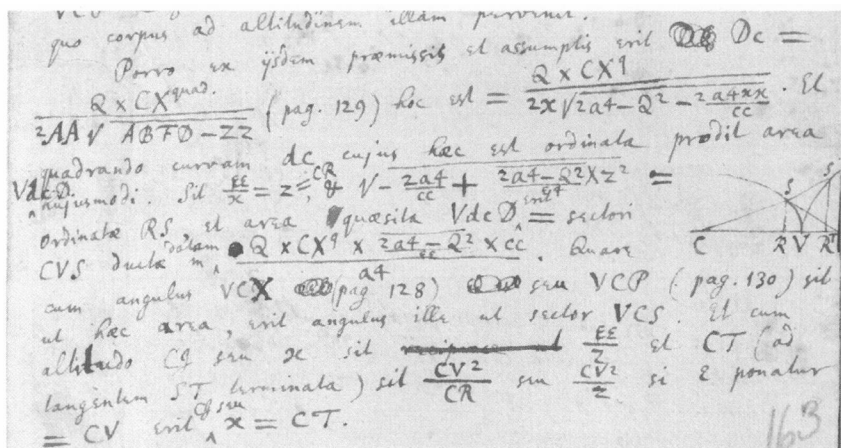 quo corpus ad altitudinem illam pervenit.
Porro ex ijsdem præmissis et assumptis erit Dc =
Q × CX quad. / 2AA √ ABFD − ZZ (pag. 129) hoc est = Q × CX q / 2x √ 2a4 − Q² − 2a4xx/cc . Et
quadrando curvam dc cujus hæc est ordinata prodit area
VdcD. hujusmodi. Sit EE/x = z = CR, & √ − 2a4/cc + 2a4 − Q² × z² / E4 =
ordinatæ RS, et area quæsita VdcD erit = sectori
CVS ducta in datam Q × CX q × 2a4/cc − Q² × cc / a4 . Quare
cum angulus VCX (pag 128) seu VCP (pag. 130) sit
ut hæc area, erit angulus ille ut sector VCS. Et cum
altitudo CI seu x sit EE/z et CT (ad
tangentem ST terminata) sit CV2/CR seu CV2/z si E ponatur
= CV erit CI seu x = CT.
S S
C R V R T
163